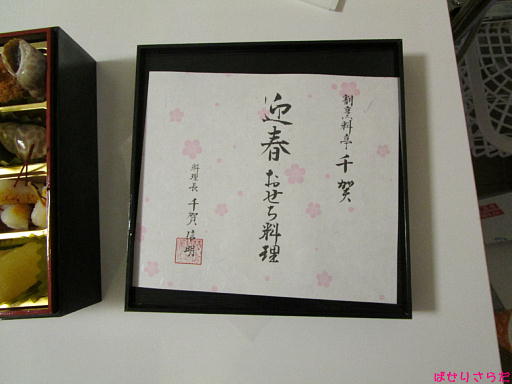 割烹料亭 千賀
迎春 おせち料理
料理長 千賀 信明
ぱせりさらだ